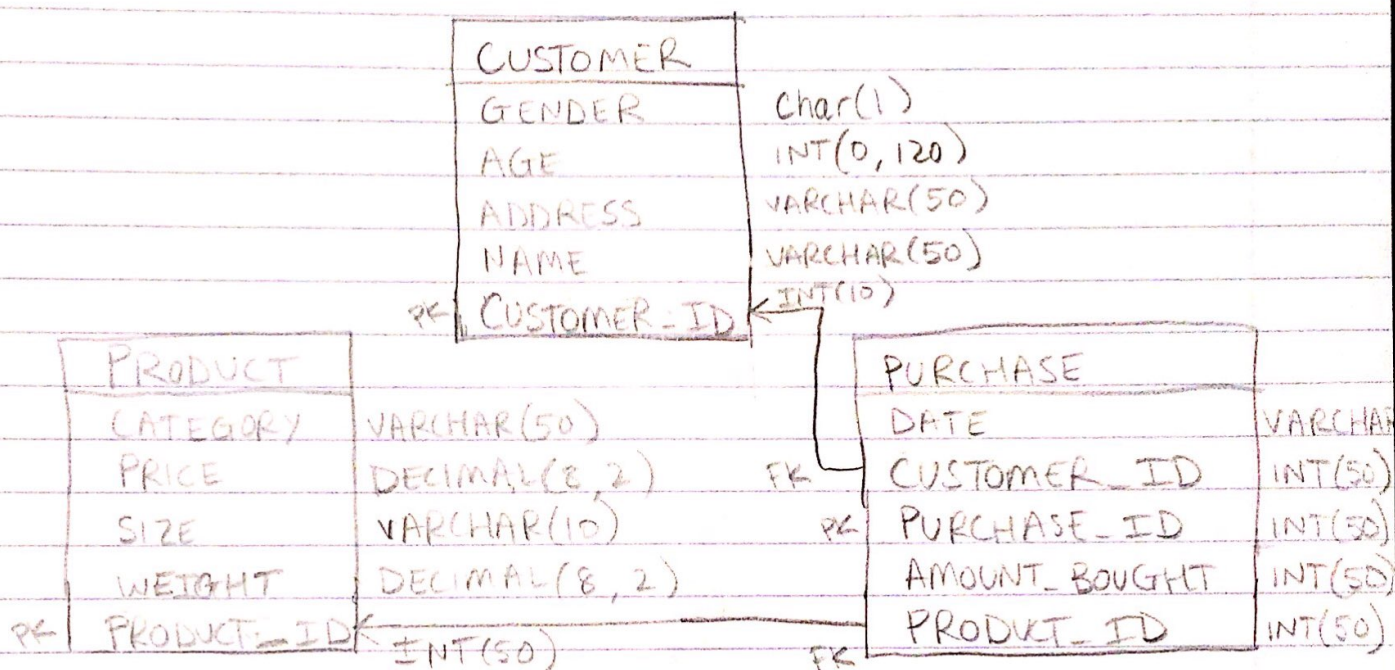 CUSTOMER
GENDER Char(1)
AGE INT(0, 120)
ADDRESS VARCHAR(50)
NAME VARCHAR(50)
PK CUSTOMER_ID INT(10)
PRODUCT
CATEGORY VARCHAR(50)
PRICE DECIMAL(8,2)
SIZE VARCHAR(10)
WEIGHT DECIMAL(8,2)
PK PRODUCT_ID INT(50)
PURCHASE
DATE VARCHAR
FK CUSTOMER_ID INT(50)
PK PURCHASE_ID INT(50)
AMOUNT_BOUGHT INT(50)
FK PRODUCT_ID INT(50)